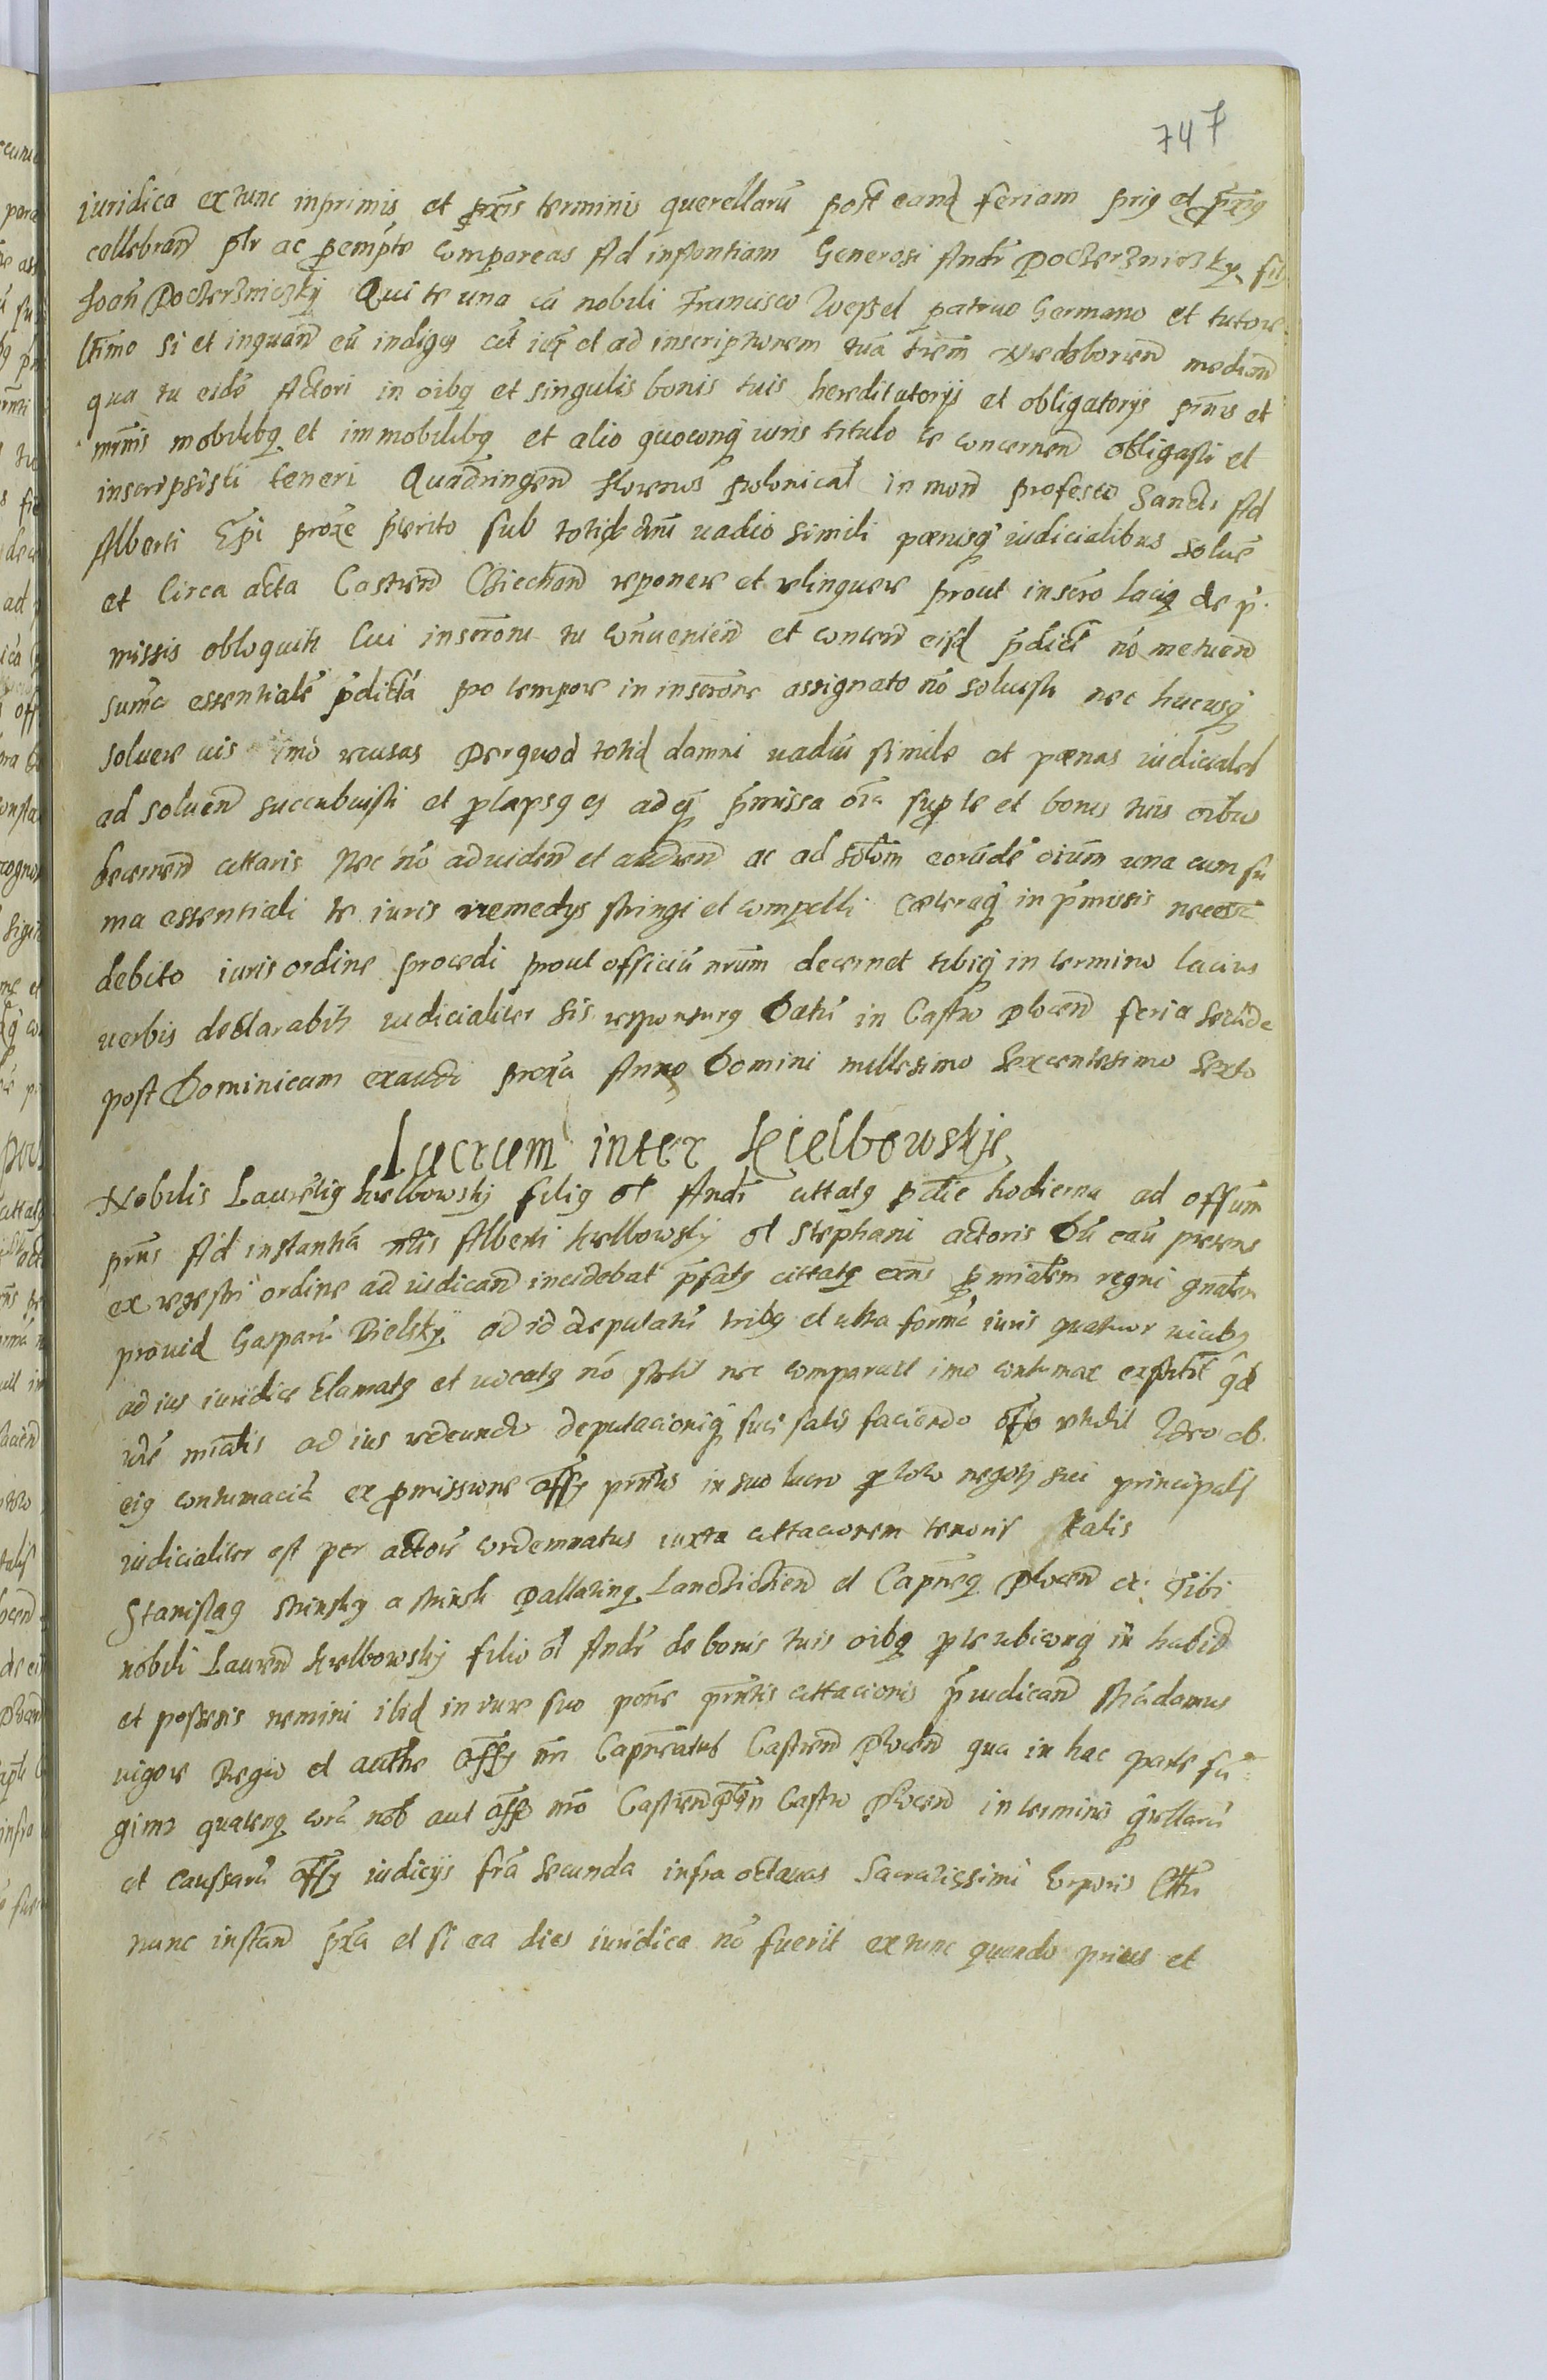 747
iuridica extunc inprimis et prois terminis querellarū post eand feriam prig et proig
cellebrand ptr ac pempte compareas Ad instantiam Generosi Andr Poczerznieczky fily
Joan Poczerznieczky Qui te una cū nobili Francisco Wessel patruo Germano et tutore
ltimo si et inquan eū indiges cit iuq et ad inscriptionem tuā
qua tu eidē Actori in oibq et singulis bonis tuis hereditatorijs et obligatorijs prnis et
mrnis mobilibq et immobilibq et alio quoconq iuris titulo te concernen obligasti et
inscripsisti teneri Quadringen florenos polonical in mon profesto Sancti Ad
Alberti Epi proxe pterito sub totid dnī uadio simili pœnisq iudicialibus soluē
et Circa acta Castren Cziechan reponere et relinquere prout inscro lacig de p
missis obloquitr Cui inscrōni tu conuenien et conten eisd pdict nō metuen
sumā essentialē pdictā po tempore in inscrōne assignato nō soluisti nec hucusq
soluere uis imo recusas Per quod totid damni uadiū simile et pœnas iudiciales
ad soluen succubuisti et plapsq es ad q pmissa oīa sup te et bonis tuis oībus
decernen cittaris Nec nō ad uiden et audien ac ad solōm eorūdē oiūm una cum su
ma essentiali te iuris remedys stringi et compelli cœteraq in pmissis necess
debito iuris ordine procedi prout officiū nrūm decernet tibiq in termino lacius
uerbis declarabitr iudicialiter sis responsurq Datū in Castro plocen feria secūda
post Dominicam exaudi proxa Anno Domini millesimo sexcentesimo sexto
Lucrum inter Kielbowskie
Nobilis Laurētig Kielbowskj filig ol Andr cittatq p die hodierna ad offūm
prns Ad instantiā nlis Alberti Kielbowskj ol Stephani actoris Dū eaū presens
ex regestri ordine ad iudican incidebat pfatq cittatq exns p miałem regni gnałem
prouid Gasparū Bielsky ad id deputatū tribq et ultra formā iuris quatuor uicibq
ad ius iuridice Clamatq et uocatq nō stetit nec comparuit imo contumax extitit qd
ad ius redeundo deputacioniq sue satis faciendo offo rtulit Ideo ob
eig contumaciā ex pmissione offy prntis in suo lucro p toto negotj sui principalj
iudicialiter est per actorē condemnatus iuxta cittacionem tenoris talis
Stanislag Minsky a Minsk Pallating Lanchichien et Capneq Plocen etc Tibi
nobili Lauren Kielbowskj filio ol Andr de bonis tuis oibq p te ubiconq in habit
et possessis nemini ibid in iure suo pone prntis cittacionis piudican Mādamus
uigore Regio et authe offy nri Capneatus Castren Plocen qua in hac parte fū
gimr quatenq corā nob aut offo nro Castren pltn Castro Plocen in terminis qrellarū
et caussarū offy iudicijs fra secunda infra octauas Sacratissimi Corporis Chri
nunc instan pxa et si ea dies iuridica nō fuerit extunc quando prius et